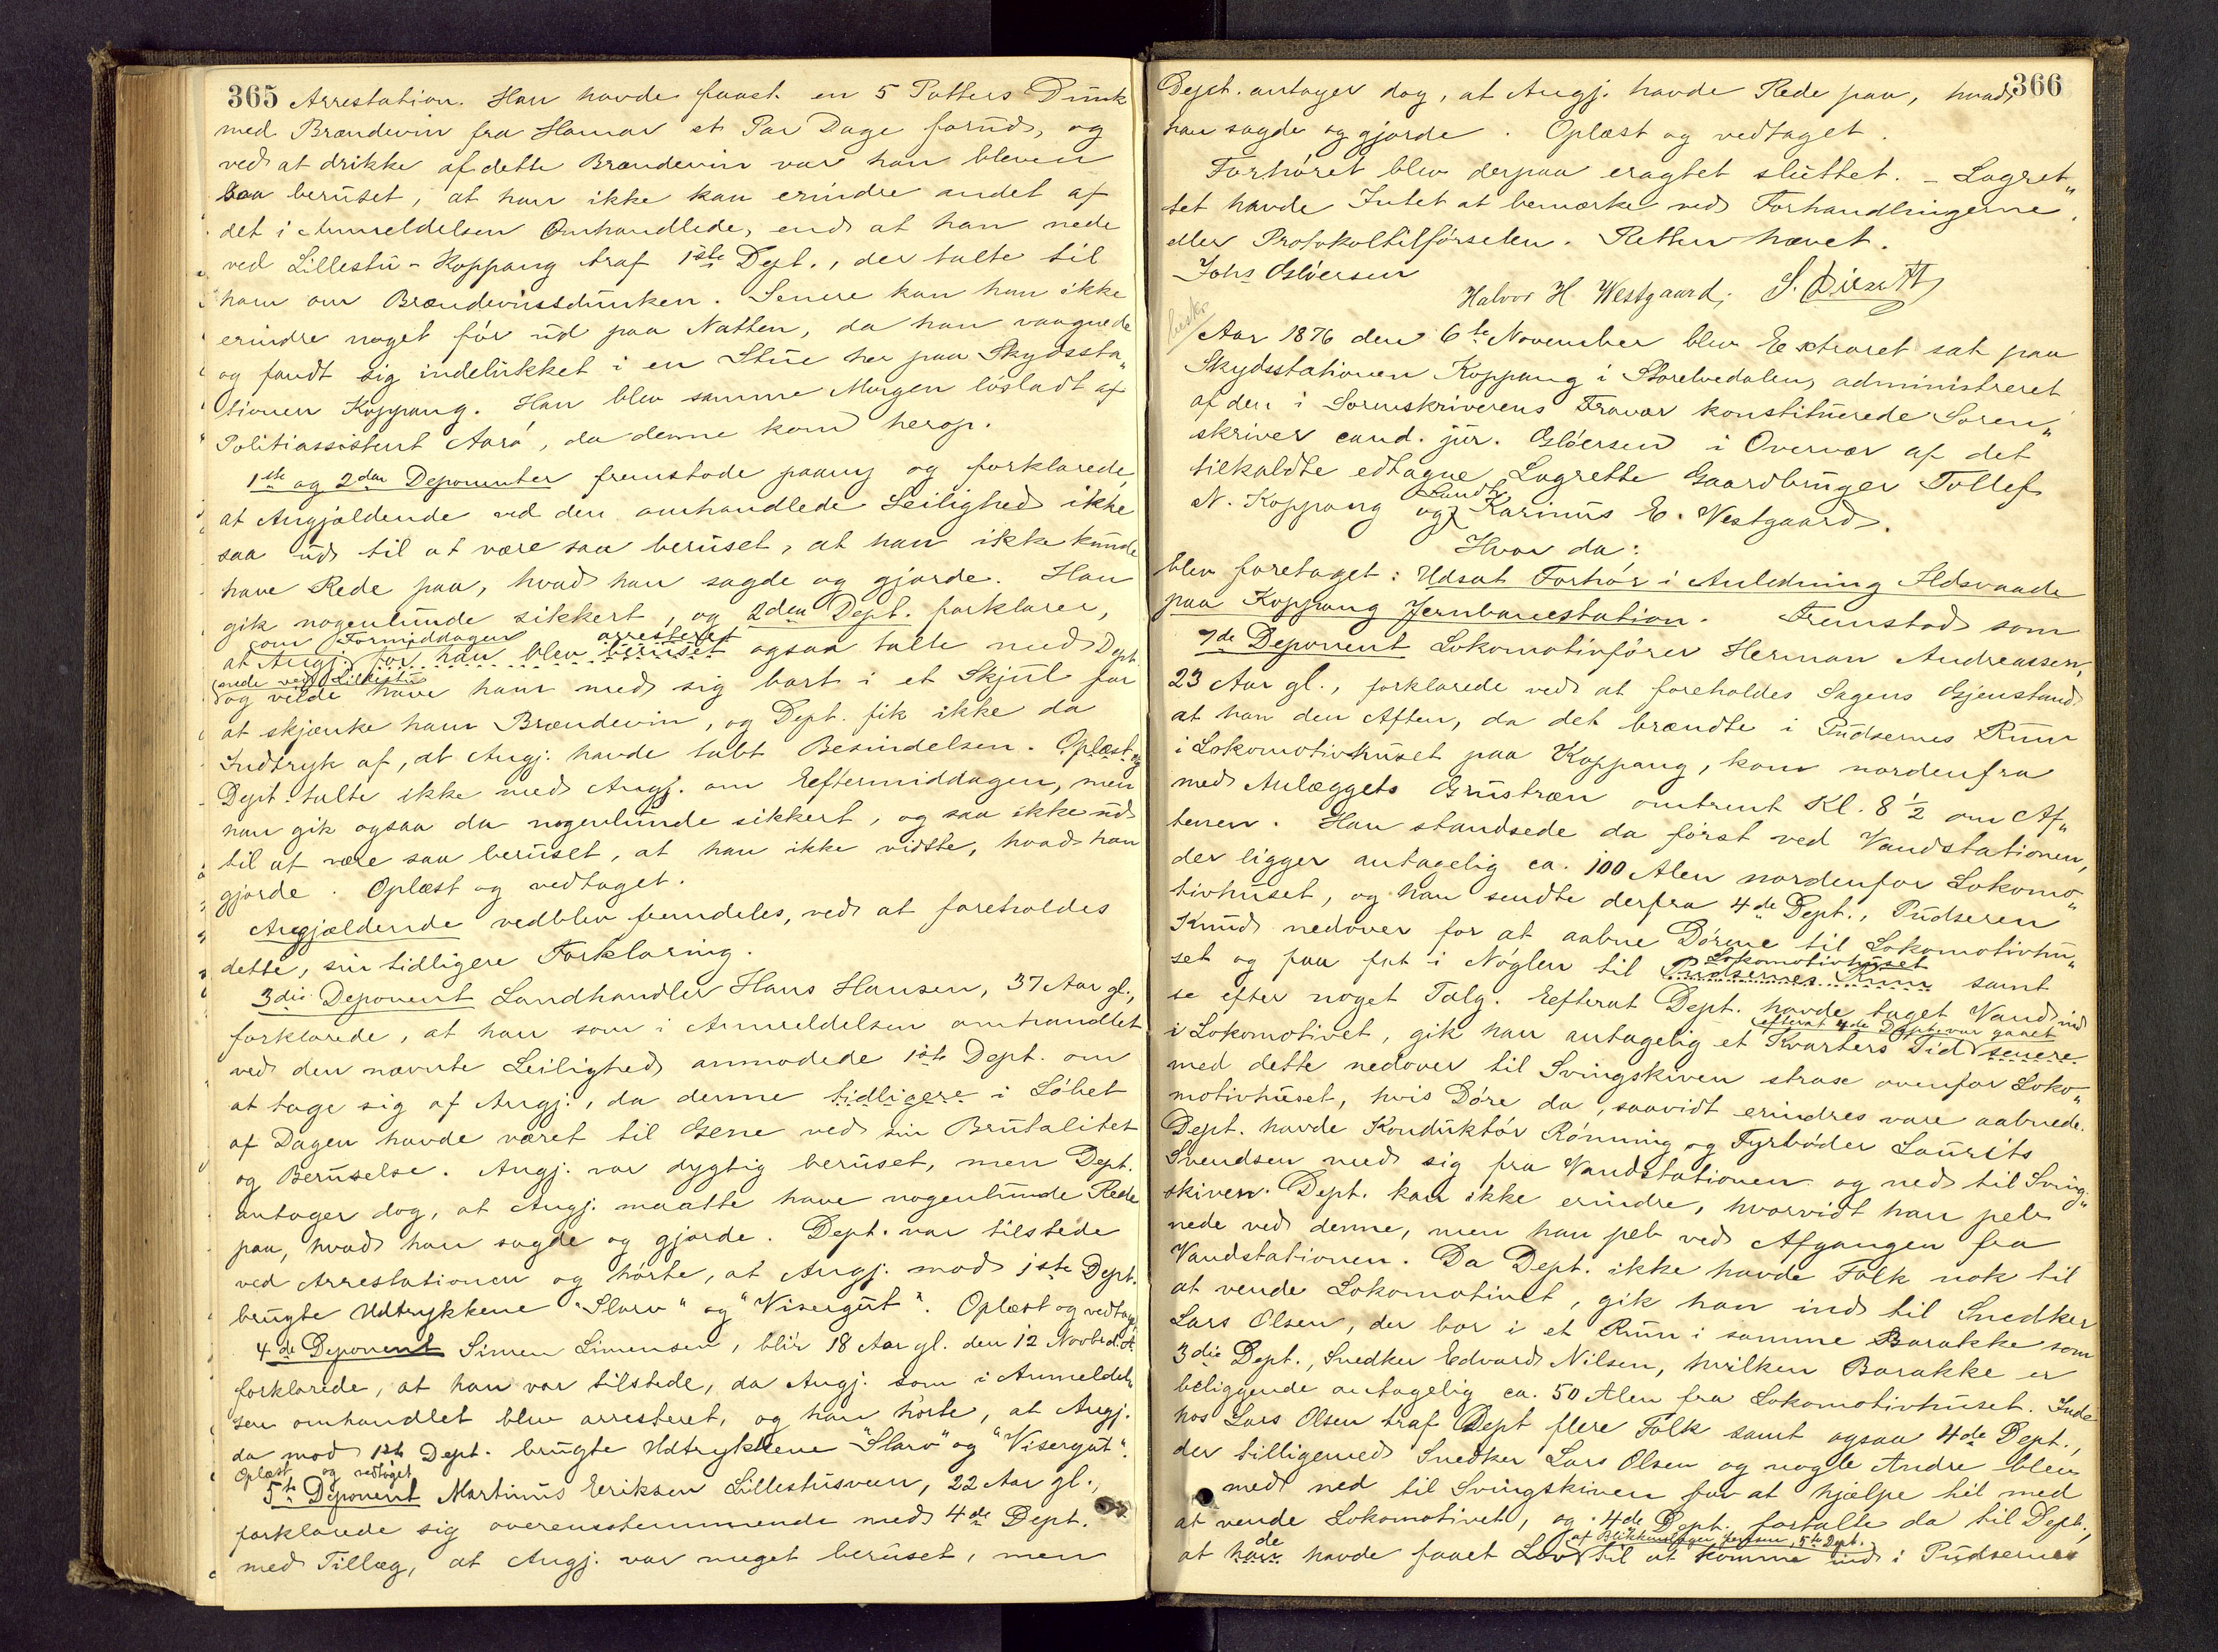 365 Arrestation. Han havde faaet en 5 Potters Dunk
med Brændevin fra Hamar et Par Dage forud, og
ved at drikke af dette Brændevin var han bleven
saa beruset, at han ikke kan erindre andet af
det i Anmeldelsen Omhandlede, end at han nede
ved Lillestu-Koppang traf 1ste Dept., der talte til
ham om Brændevinsdunken. Senere kan han ikke
erindre noget før ud paa Natten, da han vaagnede
og fandt sig indelukket i en Stue her paa Skydssta„
tionen Koppang. Han blev samme Morgen løsladt af
Politiassistent Aarø, da denne kom herop.
1ste og 2den Deponenter fremstode paany og forklarede,
at Angjældende ved den omhandlede Leilighed ikke
saa ud til at være saa beruset, at han ikke kunde
have Rede paa, hvad han sagde og gjorde. Han
gik nogenlunde sikkert, og 2den Dept. forklarer,
om Formiddagen arresteret
at Angj. før han blev beruset ogsaa talte med Dept.
nede ved Lillestu
og vilde have ham med sig bort i et Skjul for
at skjænke ham Brændevin, og Dept. fik ikke da
Indtryk af, at Angj. havde tabt Besindelsen. Oplæst og
Dept. talte ikke med Angj. om Eftermiddagen, men
han gik ogsaa da nogenlunde sikkert, og saa ikke ud
til at være saa beruset, at han ikke vidste, hvad han
gjorde. Oplæst og vedtaget.
Angjældende vedblev fremdeles, ved at foreholdes
dette, sin tidligere Forklaring.
3die Deponent Landhandler Hans Hansen, 37 Aar gl.,
forklarede, at han som i Anmeldelsen omhandlet
ved den nævnte Leilighed anmodede 1ste Dept. om
at tage sig af Angj., da denne tidligere i Løbet
af Dagen havde været til Gene ved sin Brutalitet
og Beruselse. Angj. var dygtig beruset, men Dept.
antager dog, at Angj. maatte have nogenlunde Rede
paa, hvad han sagde og gjorde. Dept. var tilstede
ved Arrestationen og hørte, at Angj. mod 1ste Dept.
brugte Udtrykkene "Slarv" og "Visergut". Oplæst og vedtag.
4de Deponent Simen Simensen, blir 18 Aar gl. den 12 Novbr. d.A.
forklarede, at han var tilstede, da Angj. som i Anmeldel„
sen omhandlet blev arresteret, og han hørte, at Angj.
da mod 1ste Dept. brugte Udtrykkene "Slarv" og "Visergut".
Oplæst og vedtaget
5te Deponent Martinus Eriksen Lillestusveen, 22 Aar gl.,
forklarede sig overensstemmende med 4de Dept.
med Tillæg, at Angj. var meget beruset, men
366
Dept. antager dog, at Angj. havde Rede paa, hvad
han sagde og gjorde. Oplæst og vedtaget.
Forhøret blev derpaa eragtet sluttet. – Lagret„
tet havde Intet at bemærke ved Forhandlingerne
eller Protokoltilførselen. Retten hævet.
Johs Gløersen
Halvor H. Westgaard,
Aar 1876 den 6te November blev Extraret sat paa
Skydsstationen Koppang i Storelvedalen, administreret
af den i Sorenskriverens Fravær konstituerede Soren„
skriver cand. jur. Gløersen i Overvær af det
tilkaldte edtagne Lagrette Gaardbruger Tollef
Landh.
N. Koppang og Karinus E. Vestgaard.
Hvor da:
blev foretaget: Udsat Forhør i Anledning Ildsvaade
paa Koppang Jernbanestation. Fremstod som
7de Deponent Lokomotivfører Herman Andreassen,
23 Aar gl., forklarede ved at foreholdes Sagens Gjenstand
at han den Aften, da det brændte i Pudsernes Rum
i Lokomotivhuset paa Koppang, kom nordenfra
med Anlæggets Grustræn omtrent Kl. 8 ½ om Af„
tenen. Han standsede da først ved Vandstationen,
der ligger antagelig ca. 100 Alen nordenfor Lokomo„
tivhuset, og han sendte derfra 4de Dept., Pudseren
Knud nedover for at aabne Dørene til Lokomotivhu„
Lokomotivhuset
set og faa fat i Nøglen til Pudsernes Rum samt
se efter noget Talg. Efterat Dept. havde taget Vand ind
efterat 4de Dept. var gaaet
i Lokomotivet, gik han antagelig et Kvarters Tid senere
med dette nedover til Svingskiven strax ovenfor Loko„
motivhuset, hvis Døre da, saavidt erindres vare aabnede.
Dept. havde Konduktør Rønning og Fyrbøder Laurits
Svendsen med sig fra Vandstationen og ned til Sving„
skiven. Dept. kan ikke erindre, hvorvidt han peb
nede ved denne, men han peb ved Afgangen fra
Vandstationen. Da Dept. ikke havde Folk nok til
at vende Lokomotivet, gik han ind til Snedker
Lars Olsen, der bor i et Rum i samme Barakke som
3die Dept., Snedker Edvard Nilsen, hvilken Barakke er
beliggende antagelig ca. 50 Alen fra Lokomotivhuset. Inde
hos Lars Olsen traf Dept flere Folk samt ogsaa 4de Dept.,
der tilligemed Snedker Lars Olsen og nogle Andre blev
med ned til Svingskiven for at hjælpe til med
at vende Lokomotivet, og 4de Dept. fortalte da til Dept.,
de af Blikkenslager Jensen, 5te Dept.
at han havde faaet Lov til at komme ind i Pudsernes